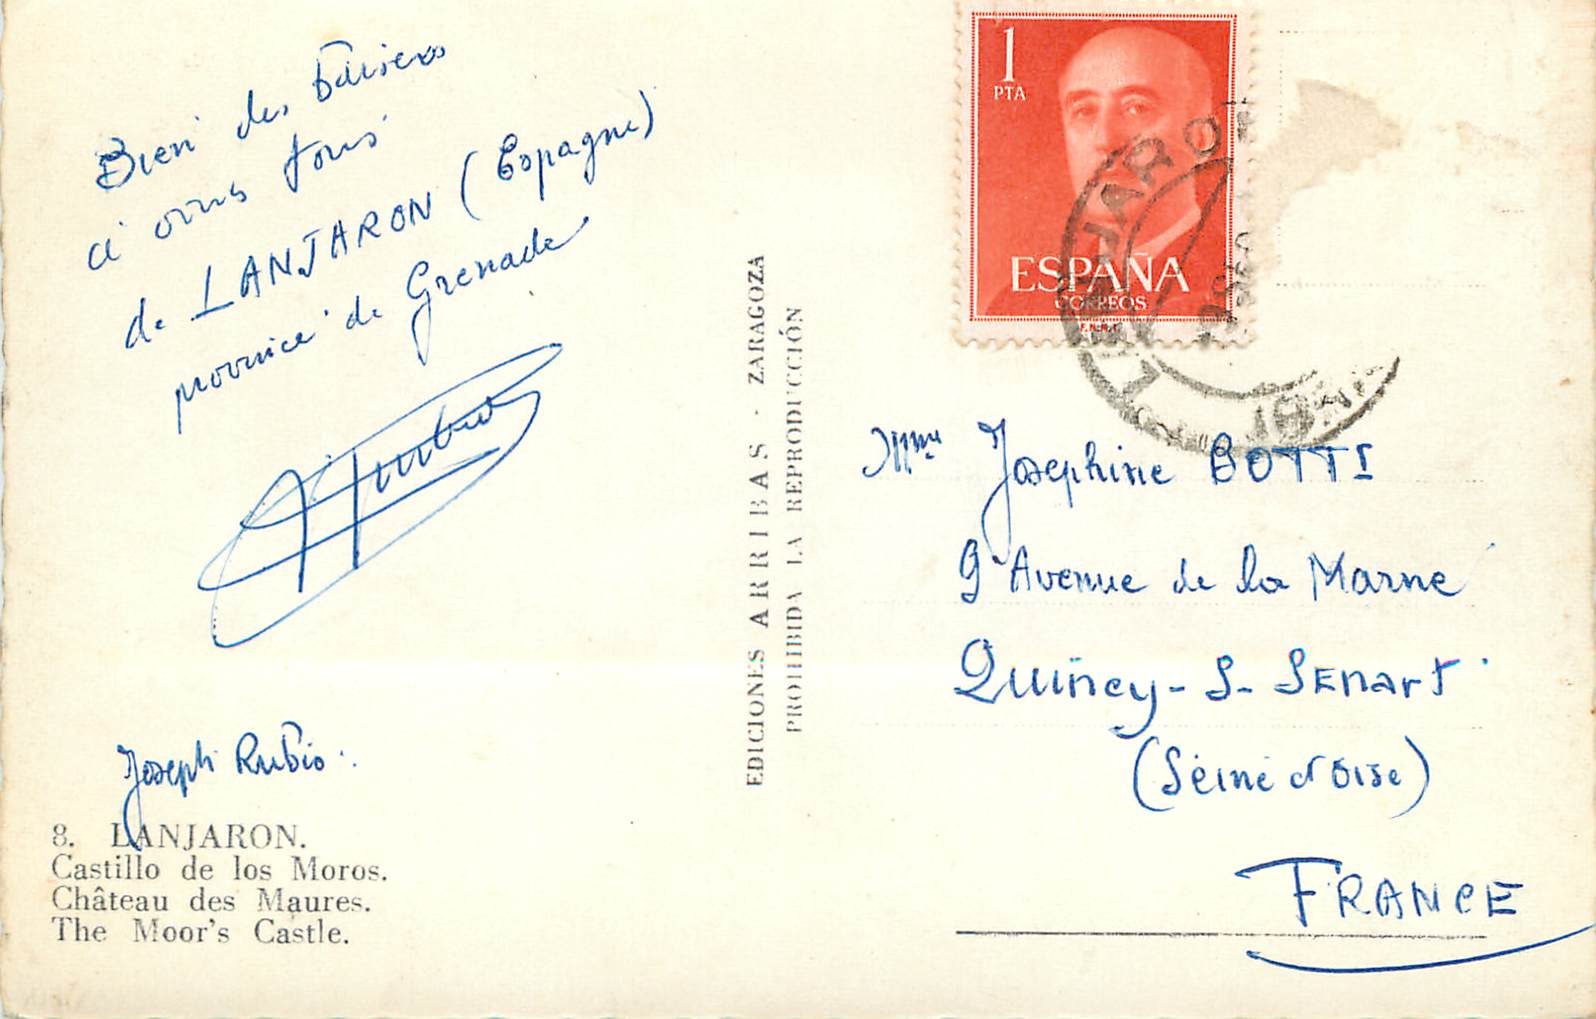 Bien des baisers
à vous tous
de LANJARON (Espagne)
province de Grenade
Joseph Rubio.
8. LANJARON.
Castillo de los Moros.
Château des Maures.
The Moor's Castle.
EDICIONES ARRIBAS - ZARAGOZA
PROHIBIDA LA REPRODUCCIÓN
1
PTA
ESPAÑA
CORREOS
F.N.M.T.
LANJARON
Mme Josephine BOTTI
9 Avenue de la Marne
Quincy-S-Senart
(Seine d'Oise)
FRANCE